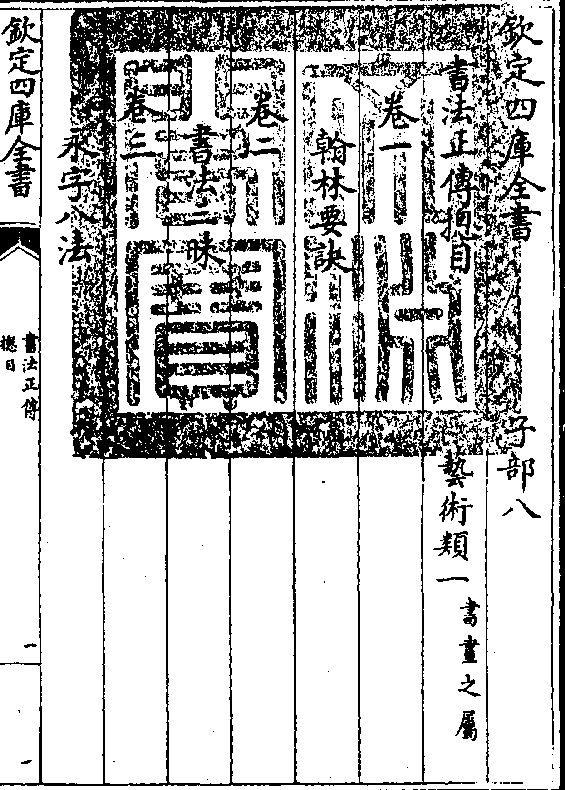 欽定四庫全書 子部八
書法正傳總目 藝術類一 書畫之屬
卷一
翰林要訣
卷二
書法三昧
卷三
永字八法
欽定四庫全書
書法正傳
總目
一